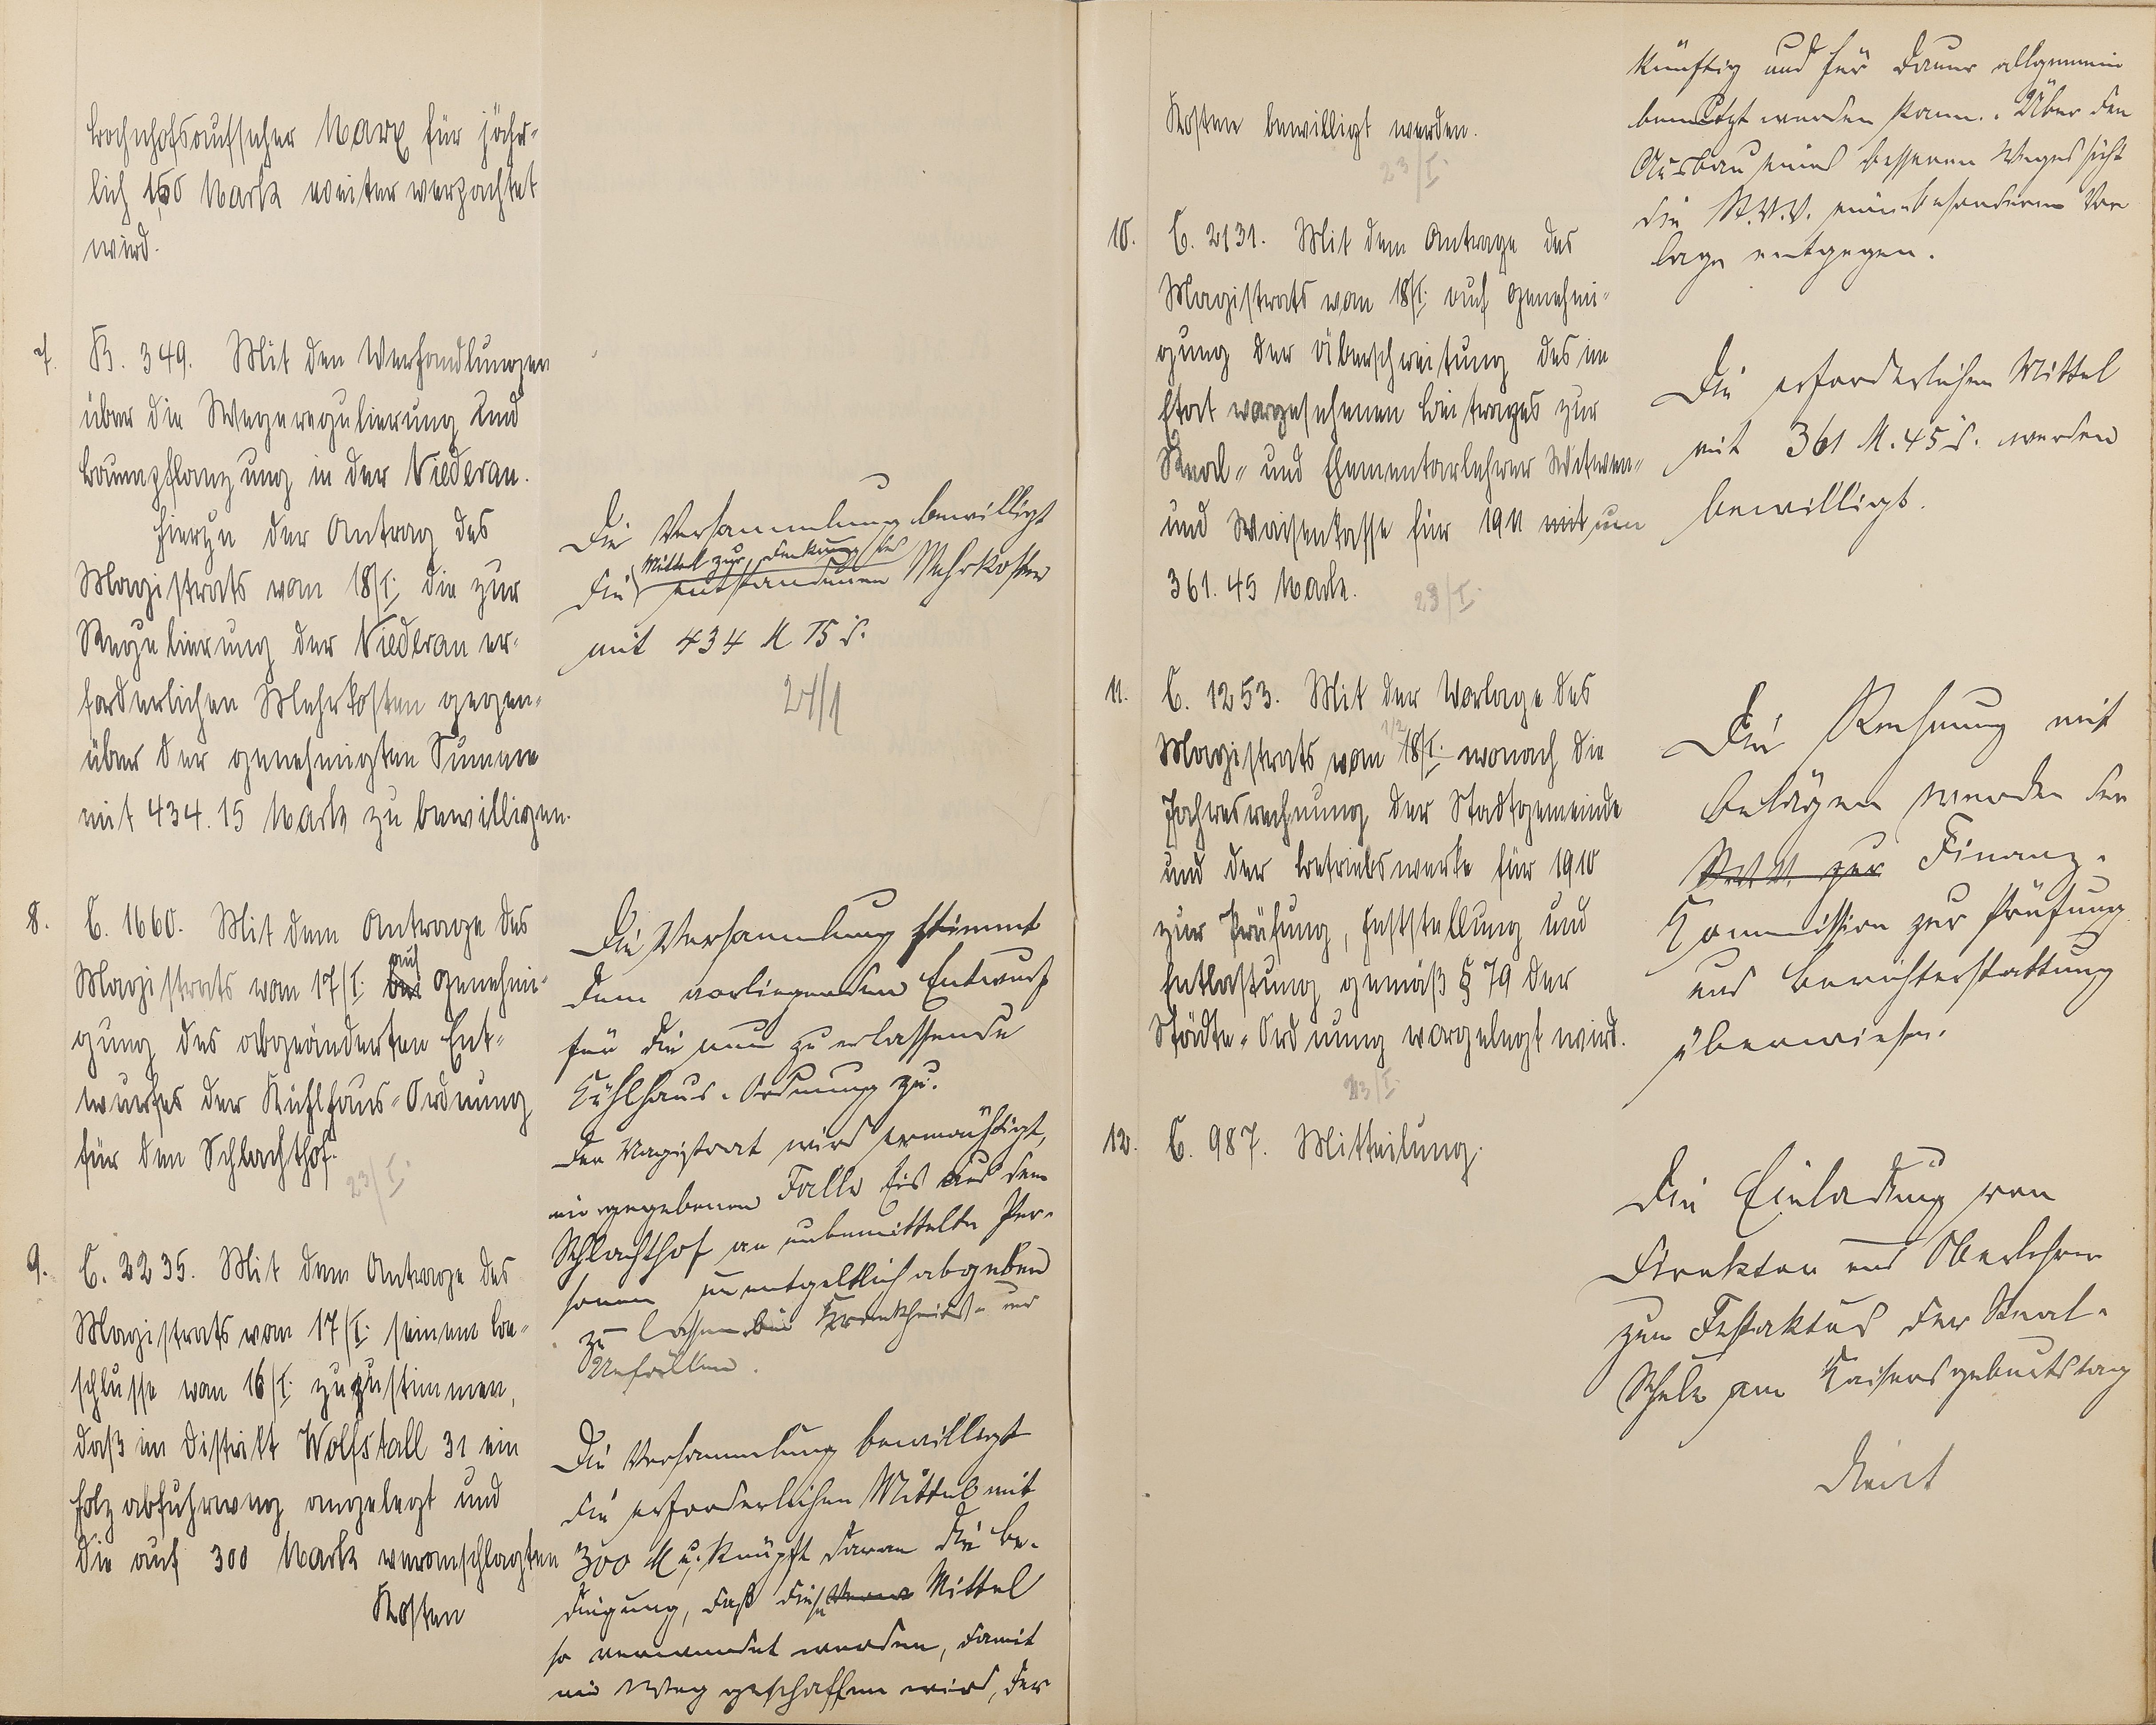 Bahnhofsaufseher Marx für jähr-
lich 150 Mark weiter verpachtet
wird.
7. B. 349. Mit den Verhandlungen
über die Wegeregulierung und
Baumpflanzung in der Niederau.
Hierzu der Antrag des
Magistrats vom 18/I. die zur
Regulierung der Niederau er-
forderlichen Mehrkosten gegen-
über der genehmigten Summe
mit 434.15 Mark zu bewilligen.
Die Versammlung bewilligt
Mittel zur Deckung der
die entstandenen Mehrkosten
mit 434 M 15 d.
24/1
8. C. 1660. Mit dem Antrage des
auf
Magistrats vom 17/I. bei Genehmi-
gung des abgeänderten Ent-
wurfes der Kühlhaus-Ordnung
für den Schlachthof.
23/I.
Die Versammlung stimmt
dem vorliegenden Entwurf
für die neu zu erlassende
Kühlhaus-Ordnung zu.
Der Magistrat wird ermächtigt,
im gegebenen Falle Eis aus dem
Schlachthof an unbemittelte Per-
sonen unentgeltlich abgeben
zu lassen bei Krankheits- und
Unfällen.
9. C. 2235. Mit dem Antrage des
Magistrats vom 17/I. seinem Be-
schlusse vom 16/I. zuzustimmen,
daß im Distrikt Wolfstall 31 ein
Holzabfuhrweg angelegt und
die auf 300 Mark veranschlagten
Kosten
Die Versammlung bewilligt
die erforderlichen Mittel mit
300 M u. knüpft daran die Be-
dingung, daß diese Mittel
so verwendet werden, damit
ein Weg geschaffen wird, der
Kosten bewilligt werden.
23/I.
künftig und für Dauer allgemein
benutzt werden kann. Über den
Ausbau eines besseren Weges sieht
die St.V.V. einer besonderen Vor
lage entgegen.
10. C. 2131. Mit dem Antrage des
Magistrats vom 18/I. auf Genehmi-
gung der Überschreitung des im
Etat vorgesehenen Beitrages zur
Real- und Elementarlehrer Witwen-
und Waisenkasse für 1911 mit um
361.45 Mark.
23/I.
Die erforderlichen Mittel
mit 361 M. 45 d. werden
bewilligt.
11. C. 1253. Mit der Vorlage des
1/2
Magistrats vom 18/I. wonach die
Jahresrechnung der Stadtgemeinde
und der Betriebswerke für 1910
zur Prüfung, Feststellung und
Entlastung gemäß § 79 der
Städte-Ordnung vorgelegt wird.
23/I.
Die Rechnung mit
Belägen werden der
St.V.V. zur Finanz-
Kommission zur Prüfung
und Berichterstattung
überwiesen.
12. C. 987. Mitteilung.
Die Einladung von
Direktor und Oberlehrer
zum Festaktus der Real-
Schule am Kaisersgeburtstag